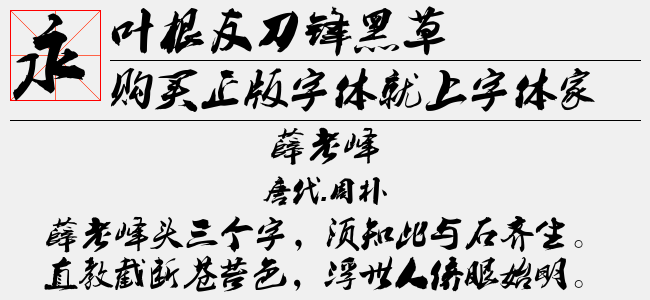 永
叶根友刀锋黑草
购买正版字体就上字体家
薛老峰
唐代.周朴
薛老峰头三个字，须知此与石齐生。
直教截断苍苔色，浮世人侪眼始明。